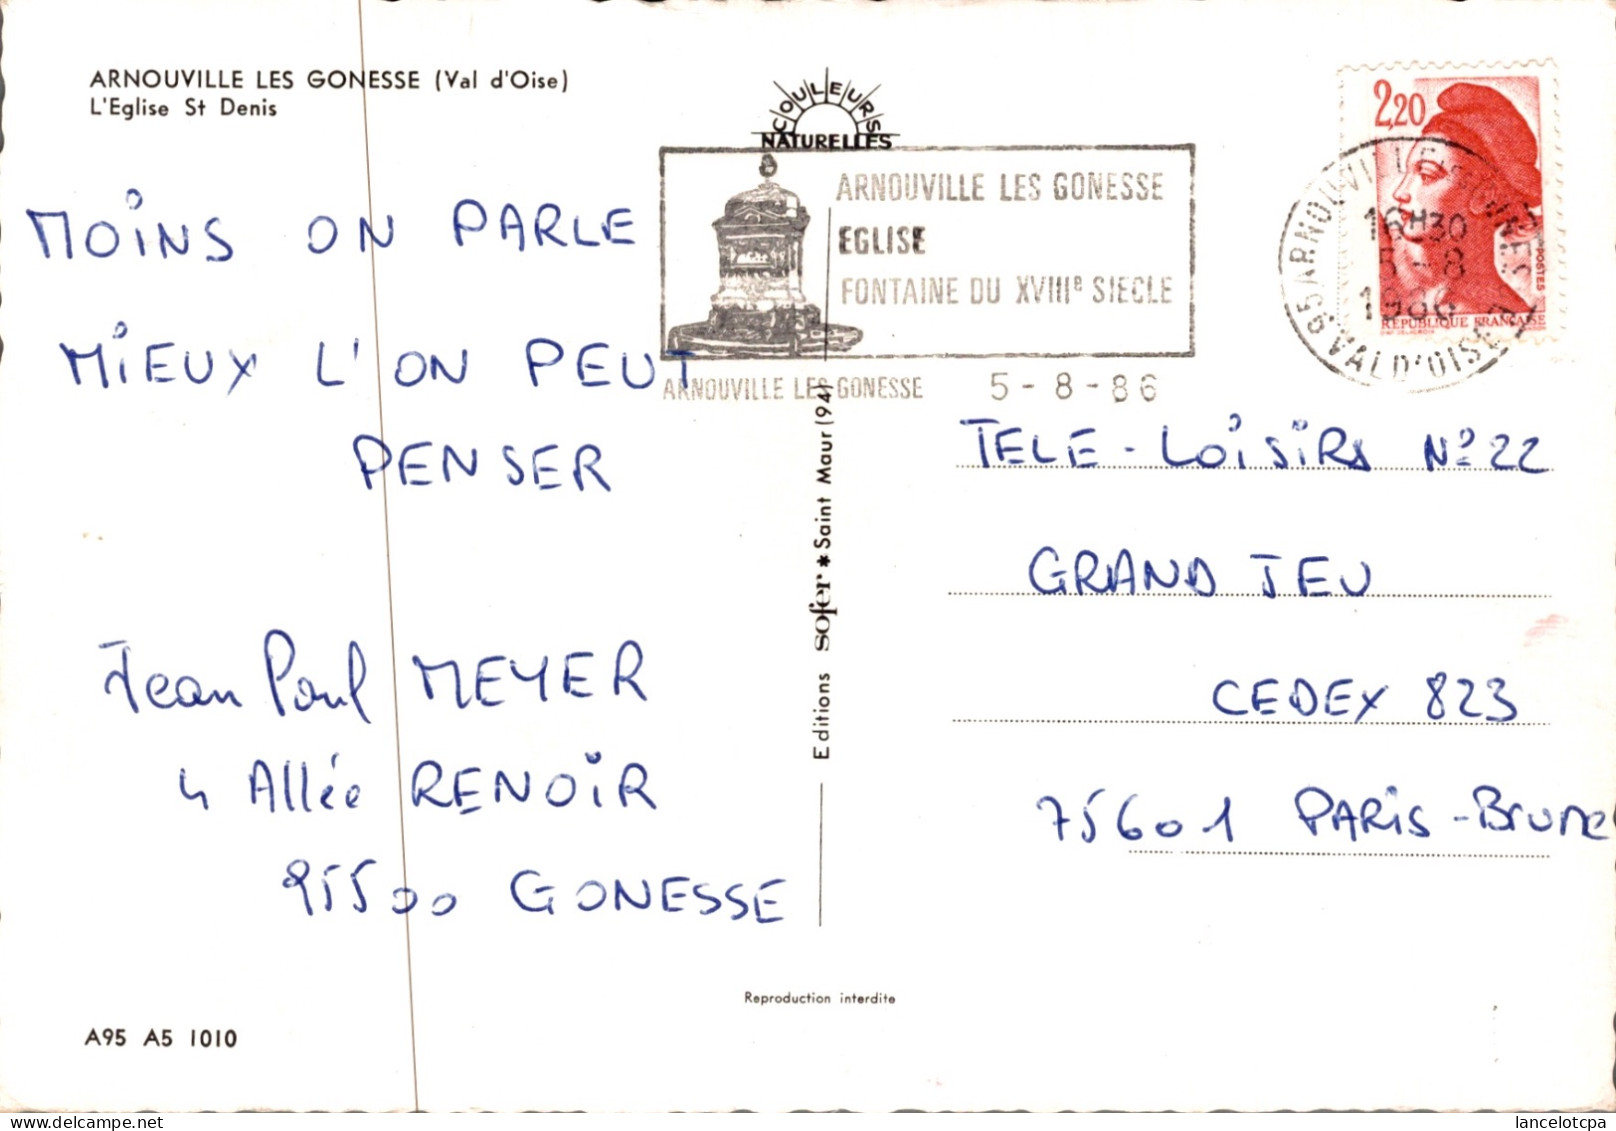 ARNOUVILLE LES GONESSE (Val d'Oise)
L'Eglise St Denis
COULEURS
NATURELLES
ARNOUVILLE LES GONESSE
EGLISE
FONTAINE DU XVIIIe SIECLE
ARNOUVILLE LES GONESSE 5-8-86
2,20
POSTES
REPUBLIQUE FRANÇAISE
16H30
5-8
1986
95 VAL D'OISE
MOINS ON PARLE
MIEUX L'ON PEUT
PENSER
Jean Paul MEYER
4 Allée RENOIR
95500 GONESSE
Editions sofer * Saint Maur (94)
TELE-LOISIRS N° 22
GRAND JEU
CEDEX 823
75601 PARIS-BRUNE
Reproduction interdite
A95 A5 1010
lancelotcpa